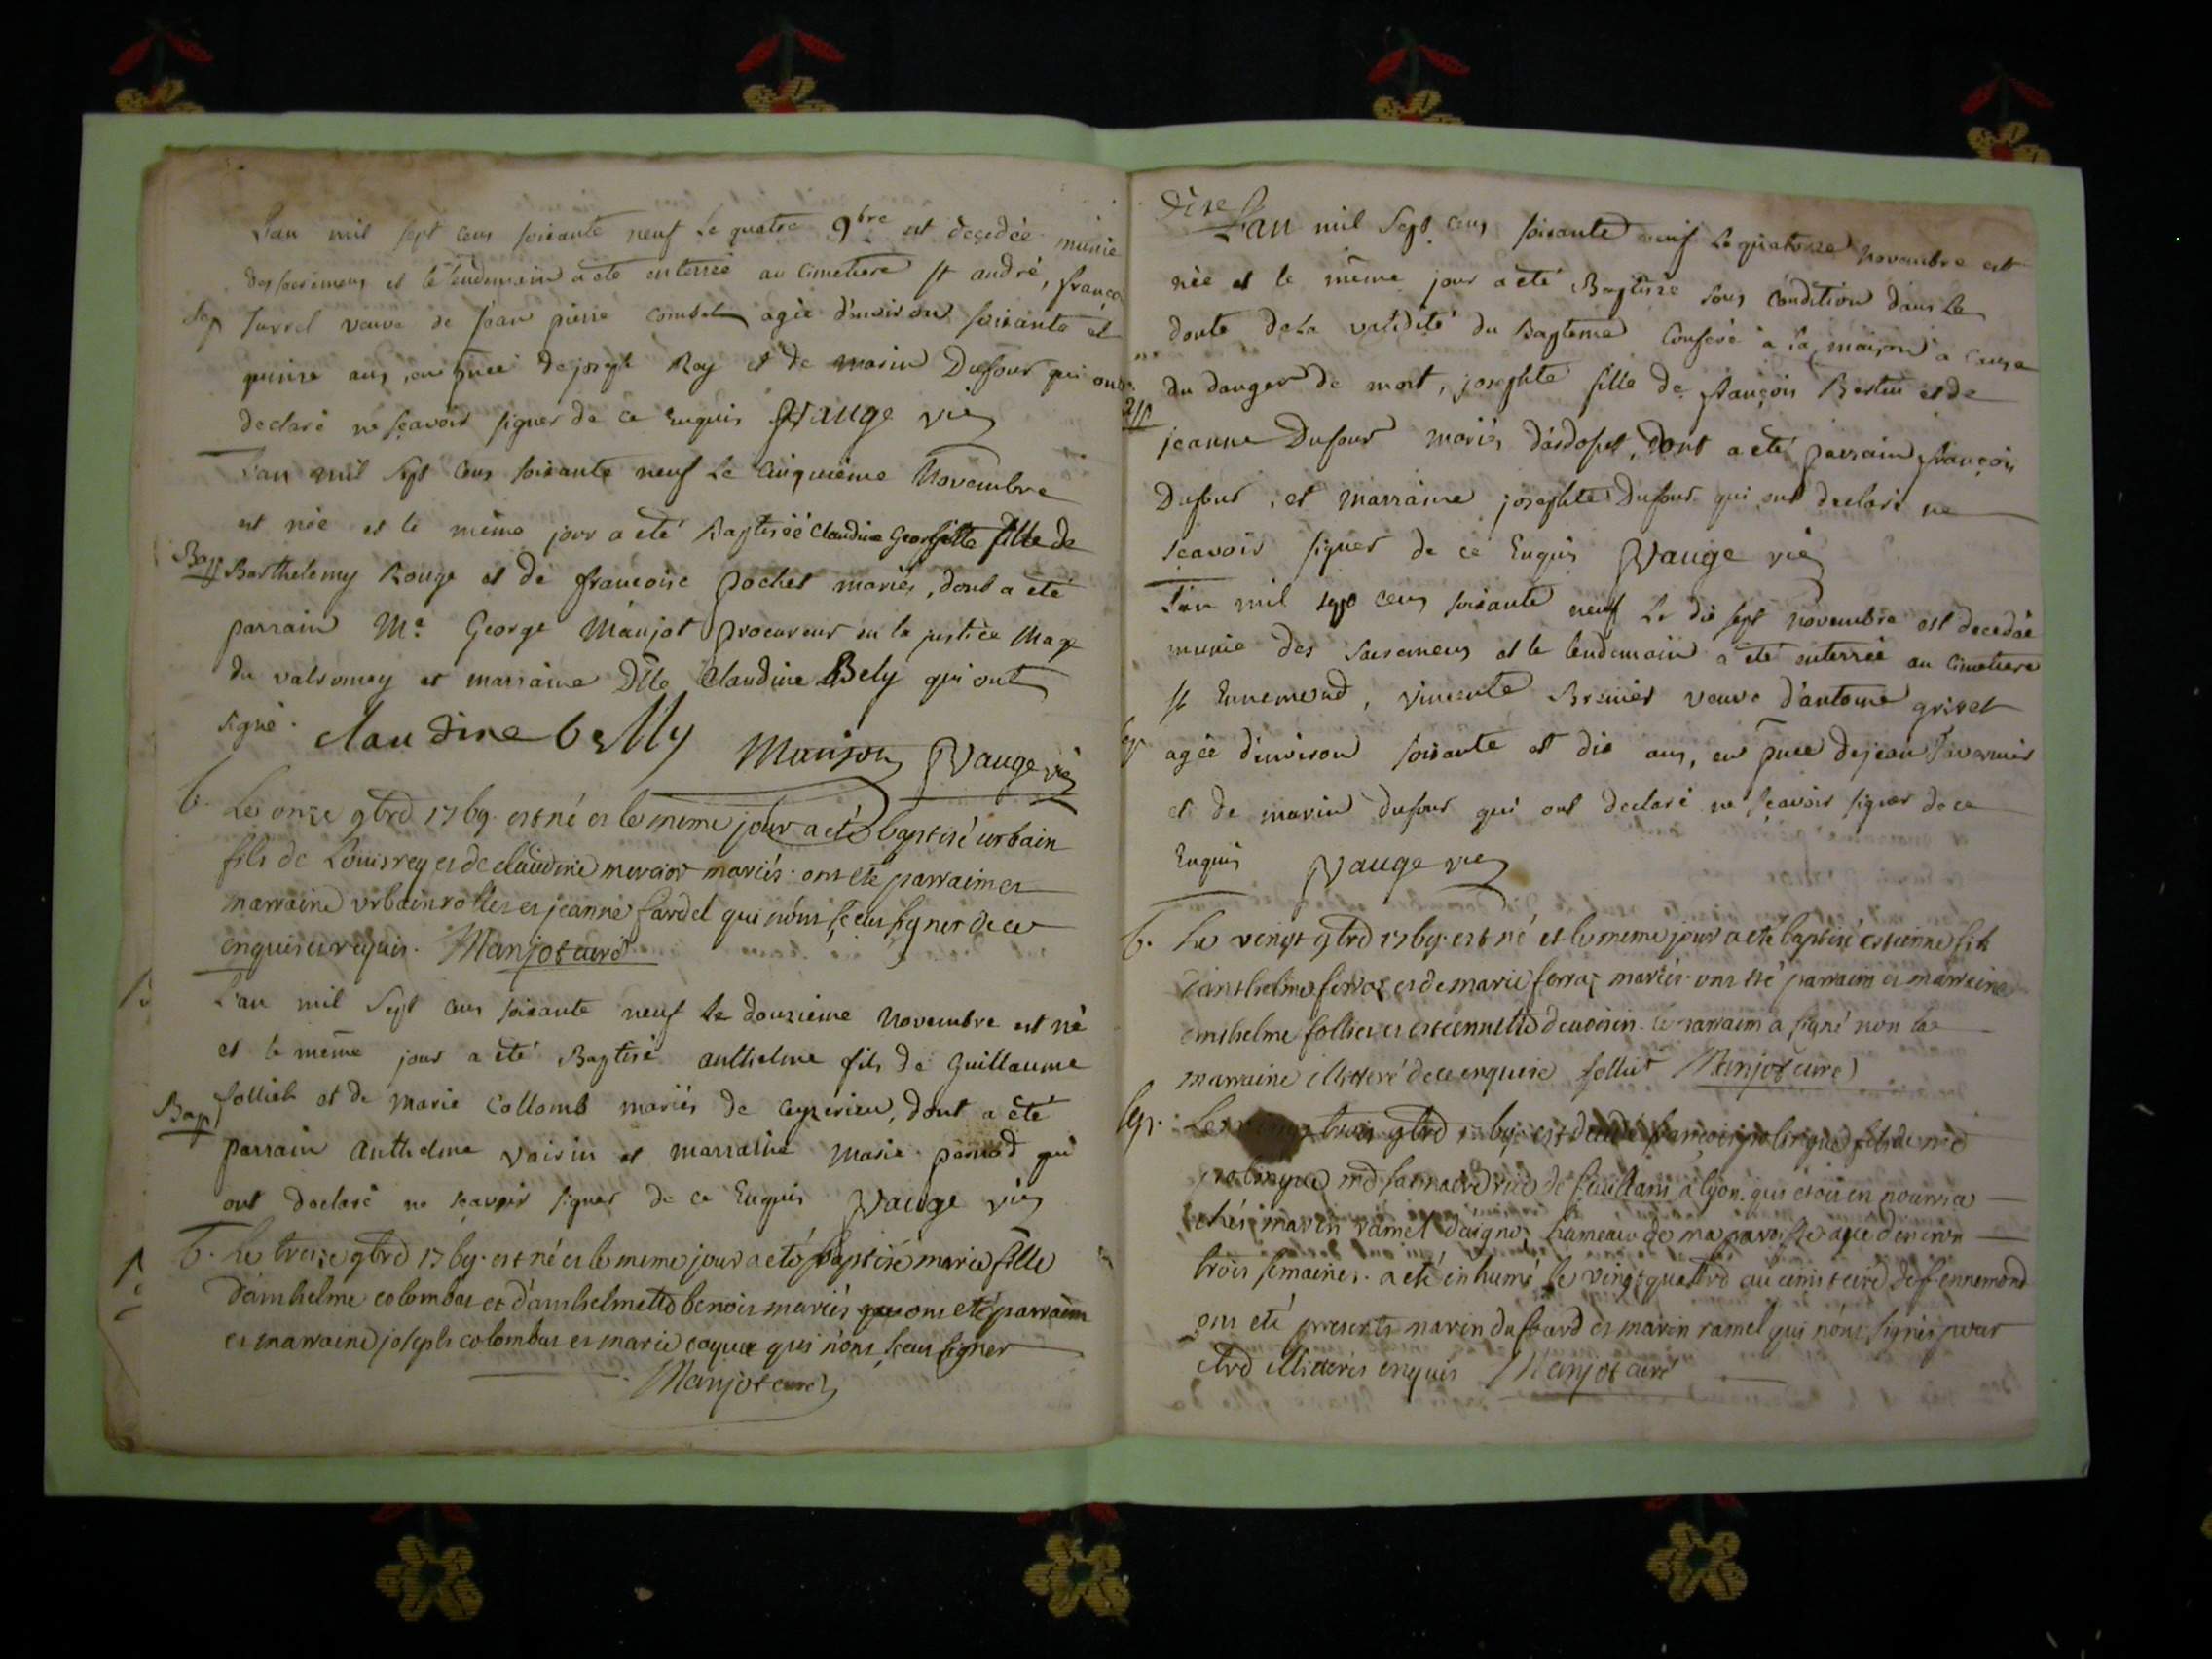 L'an mil sept cens soixante neuf le quatre 9bre est decedée munie
des sacremens et le lendemain a eté enterrée au cimetiere st andré, françoi
Sep surrel veuve de jean pierre combet agée d'environ soixante et
quinze ans, en pnce de joseph Rey et de marin Dufour qui ont
declaré ne sçavoir signer de ce Enquis Vauge vic
L'an mil sept cens soixante neuf le cinquième Novembre
est née et le même jour a eté Baptisée Claudine Georgette fille de
Bap Barthelemy Rouge et de francoise pochet mariés, dont a eté
parrain Me George Manjot procureur en la justice Mage
du valromey et marraine Dlle Claudine Bely qui ont
signé. claudine belly Manjot Vauge vic
b. Le onze 9bre 1769. est né et le meme jour a eté baptisé urbain
fils de Louis rey et de claudine mercier mariés. ont ete parrain et
marraine urbain rollet et jeanne fardel qui n'ont sceu signer de ce
enquis et requis. Manjot curé
L'an mil sept cens soixante neuf le douzieme Novembre est né
et le même jour a eté Baptisé anthelme fils de Guillaume
Bap folliet et de marie Collomb mariés de ceyzerieu, dont a eté
parrain anthelme voisin et marraine marie pernod qui
ont declaré ne sçavoir signer de ce Enquis Vauge vic
b. Le treize 9bre 1769. est né et le meme jour a eté baptisé marie fille
d'anthelme colombat et d'anthelmette benoit mariés ont eté parrain
et marraine joseph colombat et marie qui n'ont sceu signer
Manjot curé
L'an mil sept cens soixante neuf le quatorze novembre est
née et le même jour a eté Baptisée sous condition dans le
doute de la validité du Bapteme conferé à la maison a cause
du danger de mort, josephte fille de françois Bertin et de
jeanne Dufour mariés d'ardosset, dont a eté parrain françois
Dufour, et marraine josephte Dufour qui ont declaré ne
sçavoir signer de ce Enquis Vauge vic
L'an mil sept cens soixante neuf le dix sept novembre est decedée
munie des sacremens et le lendemain a eté enterrée au cimetiere
st Ennemond, vincente Brunier veuve d'antoine grivet
sep agée d'environ soixante et dix ans, en pnce de jean Tavernier
et de marin dufour qui ont declaré ne sçavoir signer de ce
Enquis Vauge vic
b. Le vingt 9bre 1769. est né et le meme jour a eté baptisé estienne fils
d'anthelme ferraz et de marie ferraz mariés. ont eté parrain et marraine
anthelme folliet et estiennette devoisin. le parrain a signé non la
marraine illitteré de ce enquise folliet Manjot curé
sep. Le vingt trois 9bre 1769. est decedé françois fils de md
md rue de à lyon. qui etoit en nourrice
chés marin ramel d'aigno, hameau de ma paroisse agé d'environ
trois semaines. a eté inhumé le vingt quattre au cimetiere de st ennemond
ont eté presents marin dufour et marin ramel qui n'ont signés pour
etre illitterés enquis Manjot curé